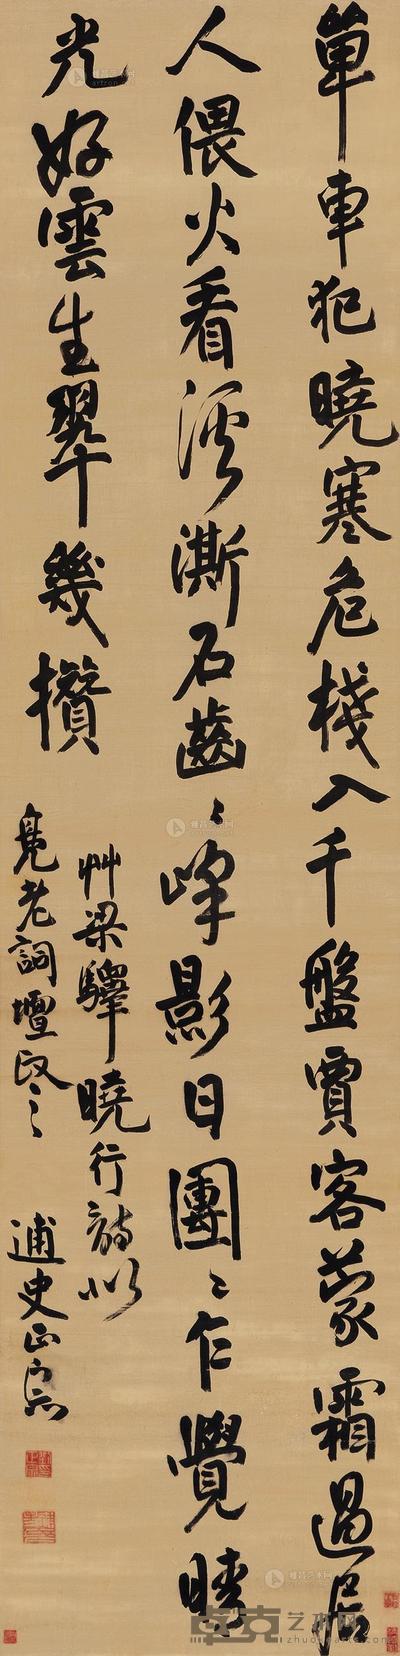 單車犯曉寒危棧入千盤賈客蒙霜過居
人偎火看溪澌石齒〻峰影日團〻乍覺晴
光好雲生翠幾攢
艸梁驛曉行詩似
老詞壇政之 逋史正宗
卓克艺术网